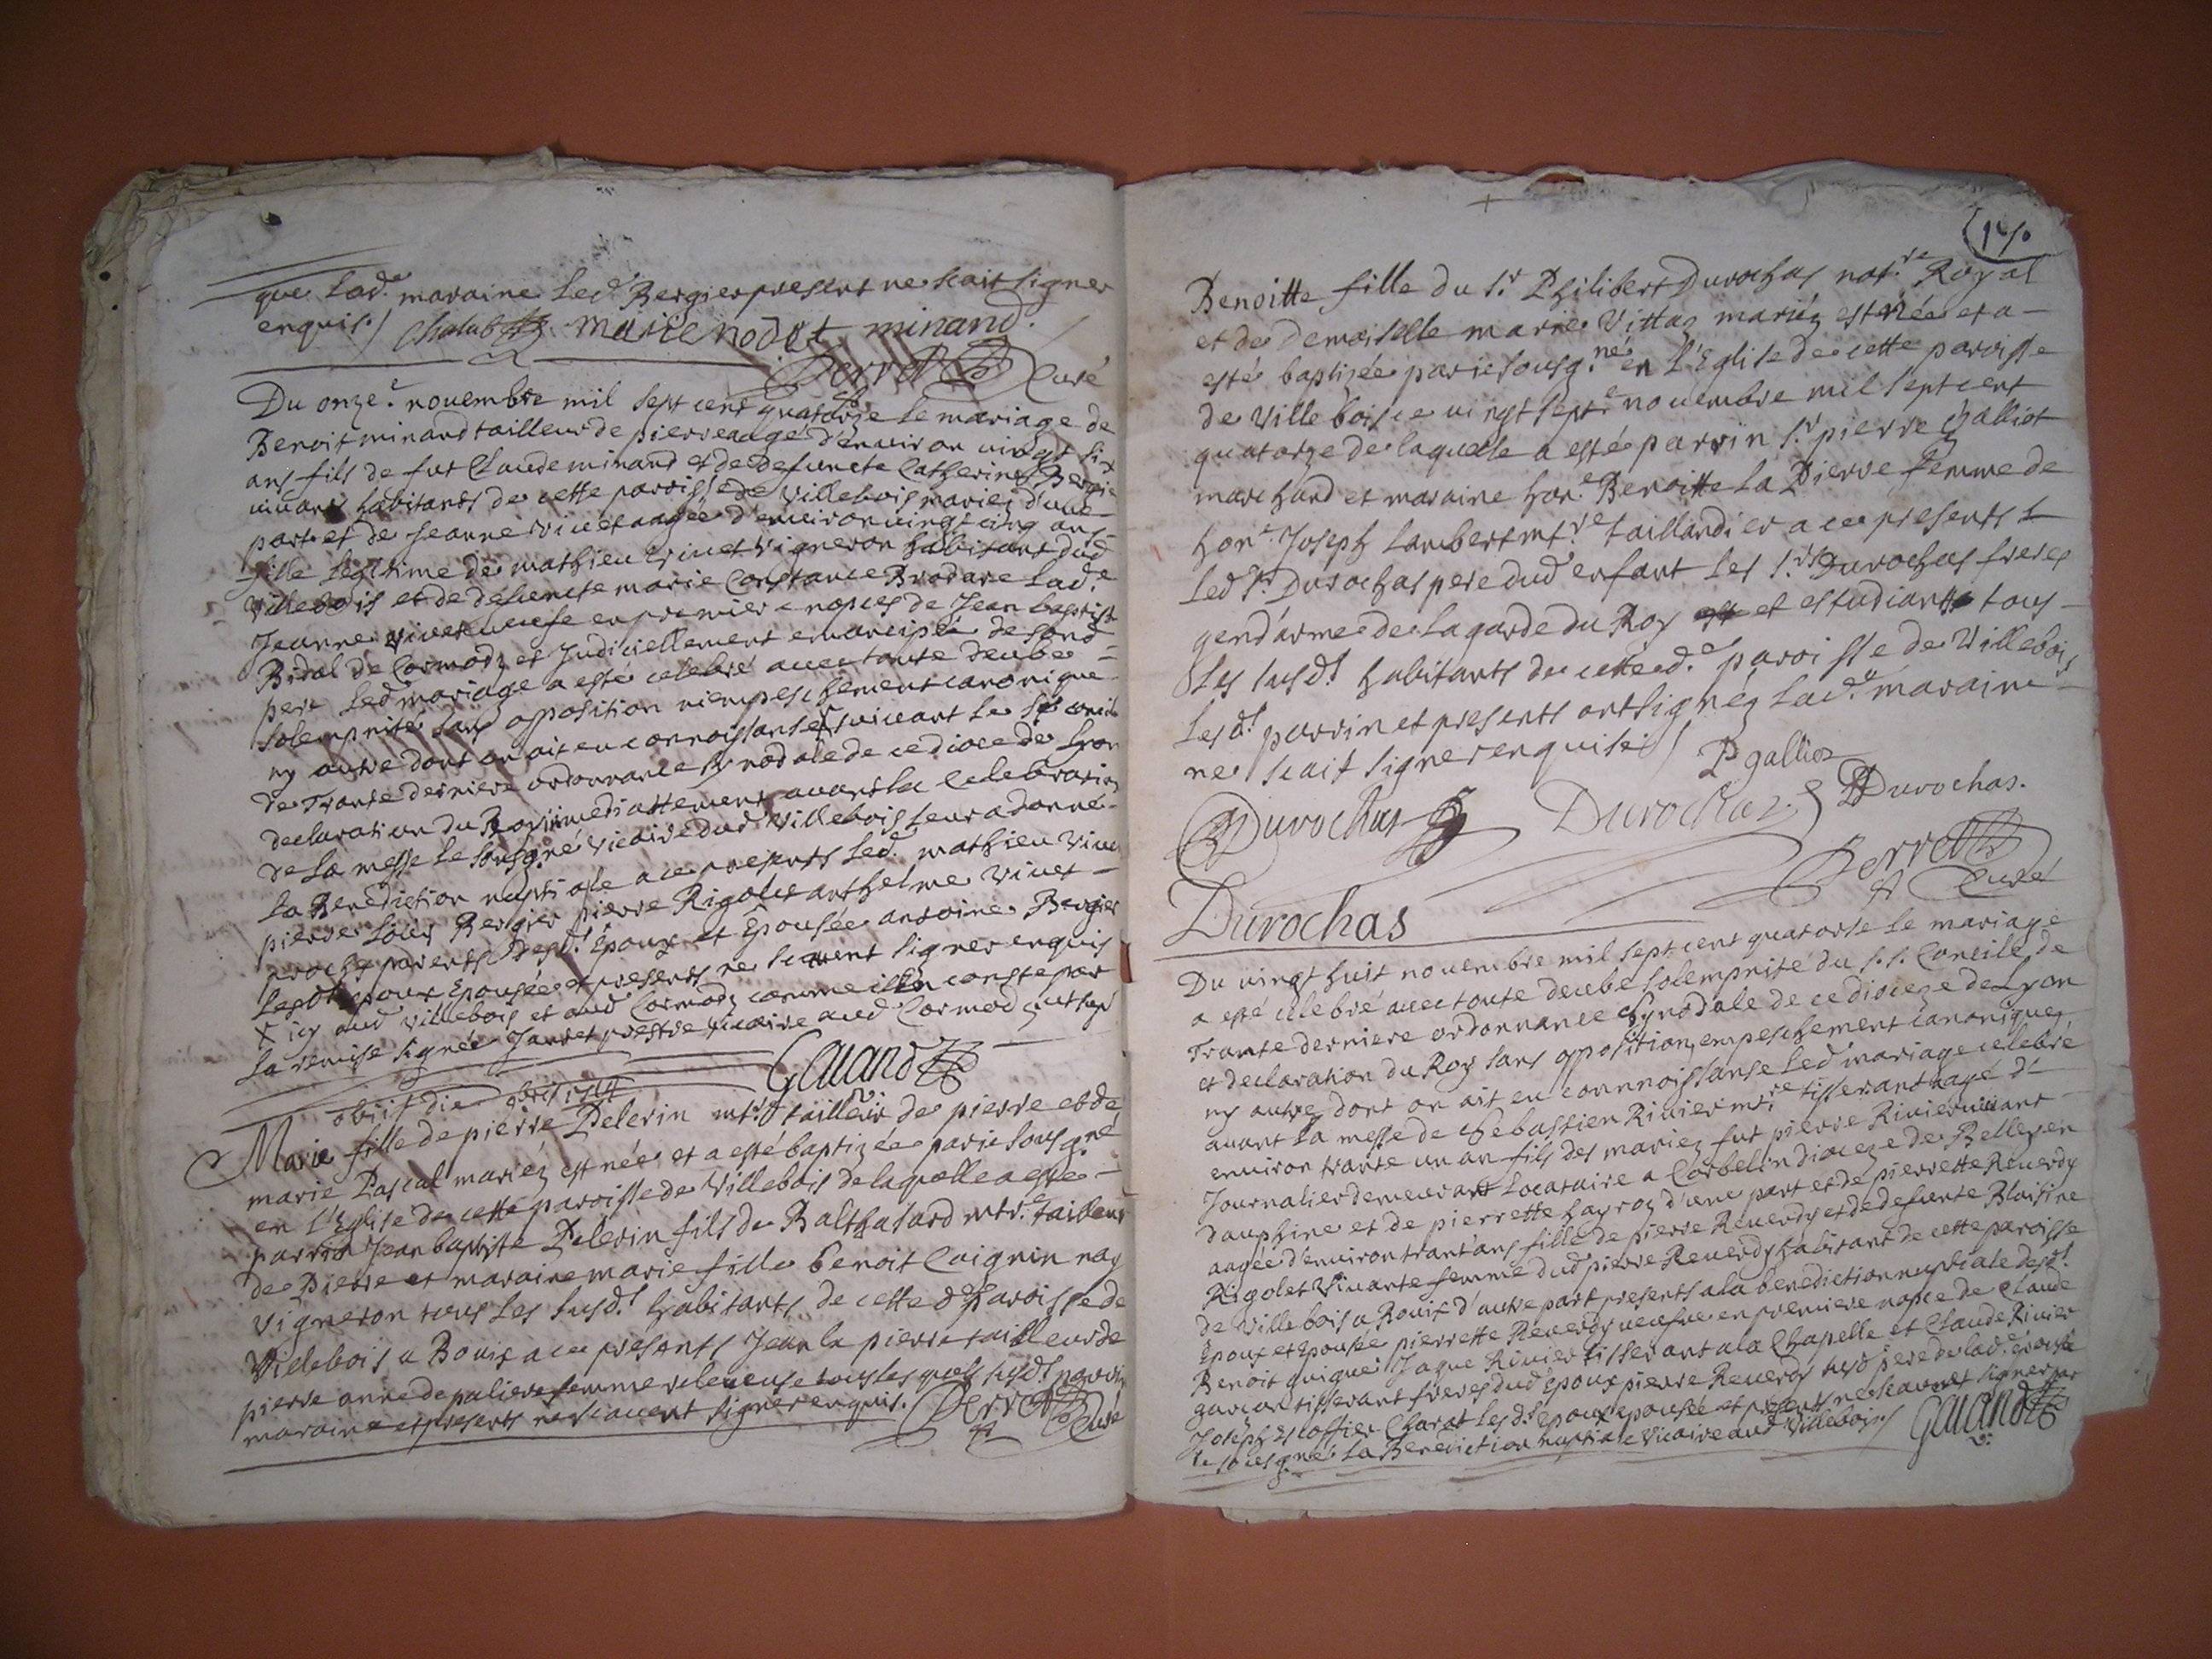 que lad.e maraine led Bergier present ne scait signer
enquis./ Chalub marie nodet minand.
Perret Curé
Du onze.e nouembre mil sept cent quatorze le mariage de
Benoit minand tailleur de pierre aagé d'enuiron uingt six
ans fils de fut Claude minand et de defuncte Catherine Bergie
uiuant habitants de cette paroisse de Villebois mariez d'une
part et de Jeanne Viuet aagée d'enuiron uingt cinq ans
fille legitime de mathieu Viuet Vigneron habitant dud
Villebois et de defuncte marie Constance Brodare lad.e
Jeanne Viuet ueufe en premier e nopces de Jean baptiste
Bidal de Cormodz et Judiciellement emancipée de sond
pere led mariage a esté celebré auec toute deube
solempnité sans opposition n'empeschement canonique
ny autre dont on ait eu connoissanse suiuant le St concile
de Trante derniere ordonnance Synodale de ce dioce de Lyon
declaration du Roy immediattement auant la Celebration
de la messe le sousg.né Vicaire dud Villebois leur a donné
la Benediction nuptiale a ce presents led. mathieu Viue
pierre Louis Bergier pierre Rigolet anthelme Viuet
proche parents desd.t Epoux et Epousée antoine Bergier
lesdt epoux epousée et presents ne scauent signer enquis
x icy aud Villebois et aud Cormodz comme il en conste par
la remise signée Jantet prestre Vicaire aud Cormodz
Gauand
V.
obiit die 1714
Marie fille de pierre Pelerin mt.re tailleur de pierre et de
marie Pascal mariéz est née et a esté baptizée par ie sousg.né
en l'Eglise de cette paroisse de Villebois de laquelle a esté
parrin Jean baptiste Pelerin fils de Balthasard mtr.e tailleur
de Pierre et maraine marie fille benoit Caignin nay
vigneron tous les susd.t habitants de cette d.e paroisse de
Villebois a Bouix a ce presents Jean la pierre tailleur de
pierre anne depaliere femme releueuse tous lesquels susd.t parrin
maraine et presents ne scauent signer enquis. Perret Curé
170
Benoitte fille du s.r Philibert Durochas not.re Royal
et de Demoiselle marie Vittaz mariéz est née et a
esté baptizée par ie sousg.né en l'Eglise de cette paroisse
de Villebois ce uingt sept.e nouembre mil sept cent
quatorze de laquelle a esté parrin s.r pierre Galliot
marchand et maraine hon.e Benoitte la Pierre femme de
hon.e Joseph Lambert mt.re taillandier a ce presents
led s.r Durochas pere dud enfant les s.rs Durochas freres
gend'arme de la garde du Roy et estudiant tous
les susd.t habitants de cette d.e paroisse de Villebois
lesd.t parrin et presents ont signéz lad.e maraine
ne scait signer enquise / P galliot
Durochas Durochas PDurochas.
Perret Curé
Durochas
Du uingt huit nouembre mil sept cent quatorse le mariage
a esté celebré auec toute deube solempnité du s.t Concile de
Trante derniere ordonnance Synodale de ce dioceze de Lyon
et declaration du Roy sans opposition, empeschement canonique
ny autre dont on ait eu connoissanse led mariage celebré
auant la messe de Sebastien Riuier mt.re tisserant aagé d'
enuiron trante un an fils des mariez fut pierre Riuier uiuant
Journalier demeurant locataire a Corbelin dioceze de Belley en
dauphine et de pierrette hayroz d'une part et de pierrette Reuerdy
aagée d'enuiron trant'ans fille de pierre Reuerdy et de defunte Blaisine
Rigolet Viuante femme dud pierre Reuerdy habitant de cette paroisse
de Villebois a Bouix d'autre part presents a la benediction nuptiale desd.t
Epoux et Epousée pierrette Reuerdy ueufue en premiere nopce de Claude
Benoit Jaque Riuier tisserant a la Chapelle et Claude Riuier
garcon tisserant freres dud Epoux pierre Reuerdy susd pere de lad.e
Joseph Escoffier Clarat lesd.t epoux epousée et presents ne scauent signer par
le sousg.né la Benediction nuptiale Vicaire aud Villebois/ Gauand
V.